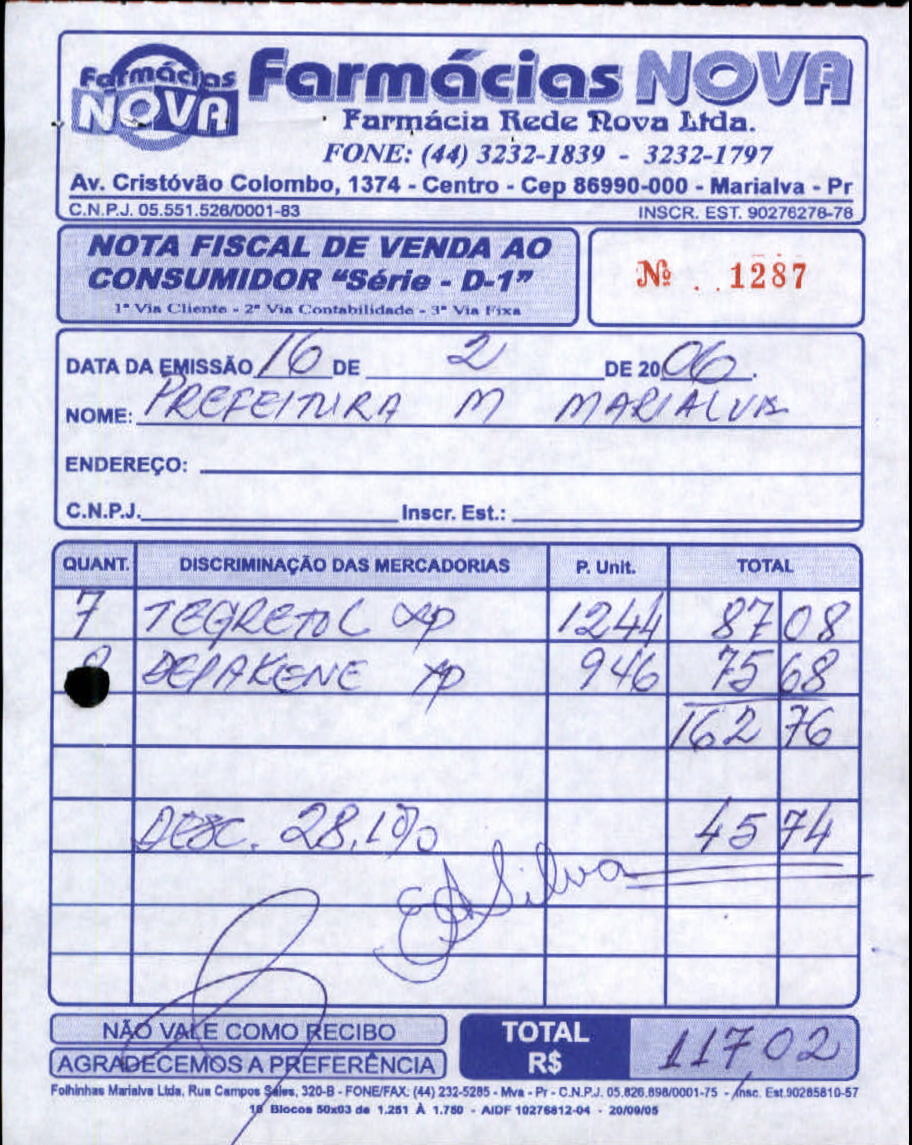 Farmácias NOVA
Farmácias NOVA
Farmácia Rede Nova Ltda.
FONE: (44) 3232-1839 - 3232-1797
Av. Cristóvão Colombo, 1374 - Centro - Cep 86990-000 - Marialva - Pr
C.N.P.J. 05.551.526/0001-83 INSCR. EST. 90276278-78
NOTA FISCAL DE VENDA AO
CONSUMIDOR "Série - D-1"
1ª Via Cliente - 2ª Via Contabilidade - 3ª Via Fixa
Nº 1287
DATA DA EMISSÃO 16 DE 2 DE 2006
NOME: PREFEITURA M MARIALVA
ENDEREÇO:
C.N.P.J. Inscr. Est.:
QUANT. DISCRIMINAÇÃO DAS MERCADORIAS P. Unit. TOTAL
7 TEGRETOL XP 1244 87 08
DEPAKENE XP 946 75 68
162 76
DESC. 28,1% 45 74
Silva
NÃO VALE COMO RECIBO
AGRADECEMOS A PREFERÊNCIA
TOTAL R$ 117,02
Folhinhas Marialva Ltda, Rua Campos Sales, 320-B - FONE/FAX: (44) 232-5285 - Mva - Pr - C.N.P.J. 05.826.898/0001-75 - Insc. Est.90285810-57
10 Blocos 50x03 de 1.251 À 1.750 - AIDF 10276812-04 - 20/09/05